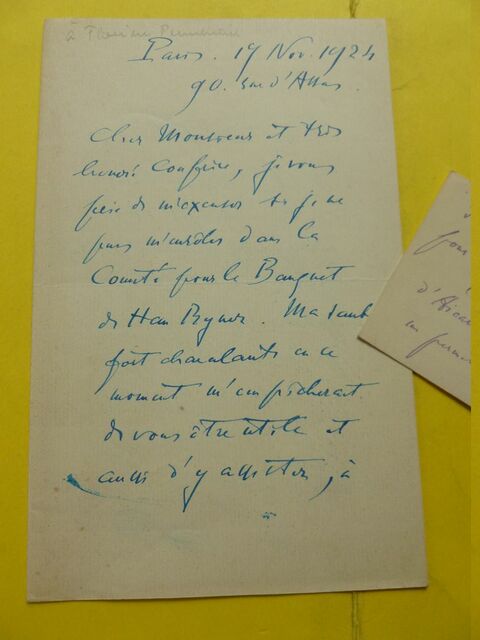 à Florian Parmentier
Paris. 19 Nov. 1924
90. rue d'Assas.
Cher Monsieur et très
honoré Confrère, je vous
prie de m'excuser si je ne
puis m'enrôler dans le
Comité pour le Banquet
de Han Ryner. Ma santé
fort chancelante en ce
moment m'empêcherait
de vous être utile et
aussi d'y assister, à
pour
d'Aicar